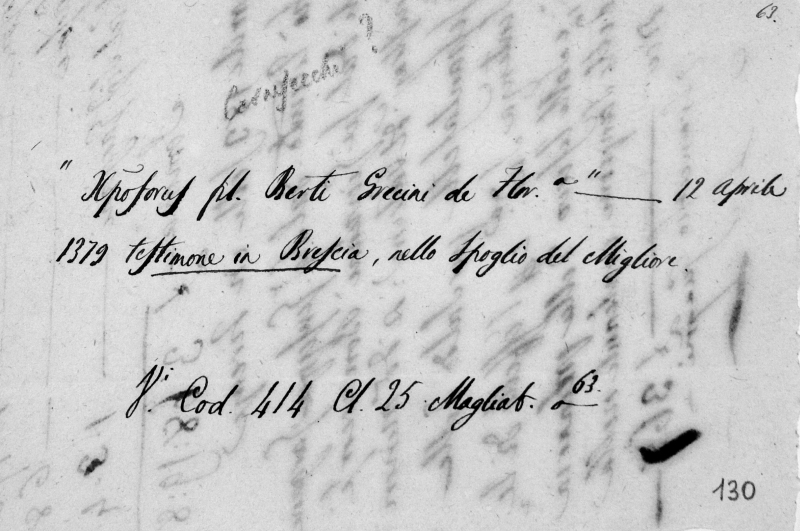 63.
Carnesecchi ?
" Xpõforus fil. Berti Grecini de Flor.ª " — 12 Aprile
1379 testimone in Brescia, nello Spoglio del Migliore.
V.i Cod. 414 Cl. 25 Magliab. a 63.
130